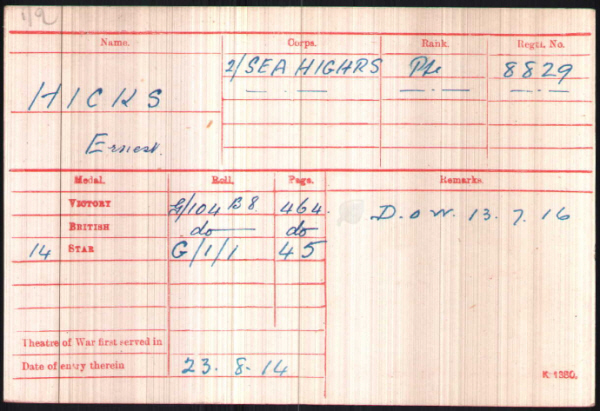 1/2
Name. Corps. Rank. Regtl. No.
2/SEA HIGHRS Pte 8829
HICKS
Ernest.
Medal. Roll. Page. Remarks.
VICTORY G/104 B8 464. D. o W. 13. 7. 16
BRITISH do do
14 STAR G/1/1 45
Theatre of War first served in
Date of entry therein 23. 8. 14
K 1380.